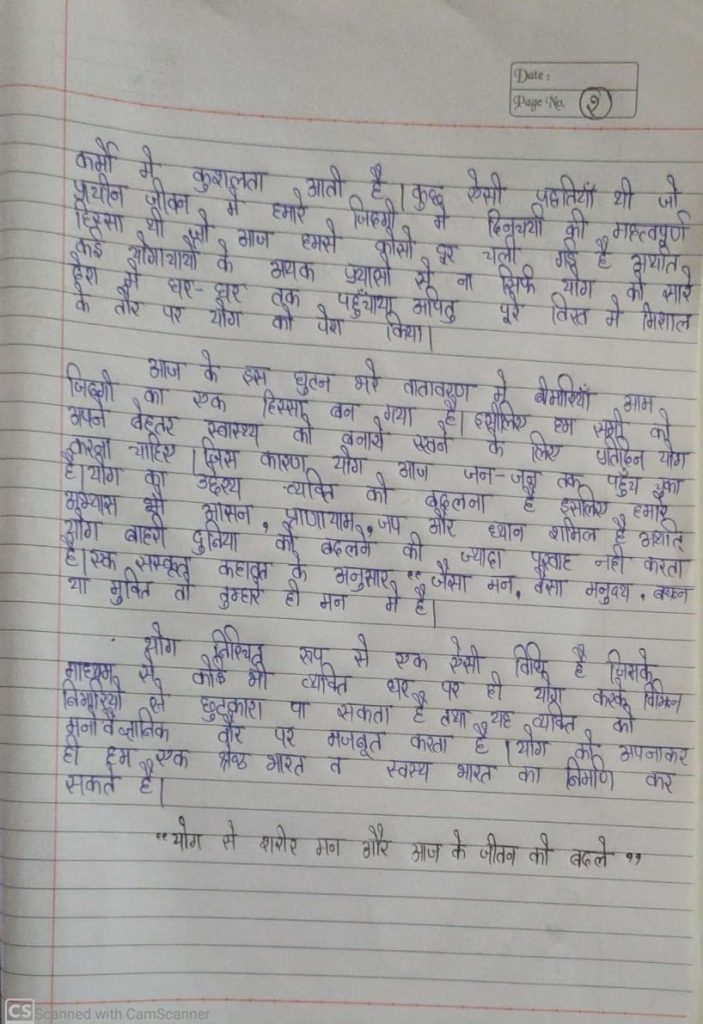 Date :
Page No. २
कर्मों में कुशलता आती है। कुछ ऐसी पद्धतियाँ थी जो
प्राचीन जीवन में हमारे जिंदगी में दिनचर्या की महत्वपूर्ण
हिस्सा थी जो आज हमसे कोसों दूर चली गई है अर्थात
कई योगाचार्यों के अथक प्रयासों से ना सिर्फ योग को सारे
देश में घर-घर तक पहुँचाया अपितु पूरे विश्व में मिशाल
के तौर पर योग को पेश किया।
आज के इस घुटन भरे वातावरण में बीमारियाँ आम
जिंदगी का एक हिस्सा बन गया है। इसीलिए हम सभी को
अपने बेहतर स्वास्थ्य को बनाये रखने के लिए प्रतिदिन योग
करना चाहिए। जिस कारण योग आज जन-जन तक पहुँच चुका
है। योग का उद्देश्य व्यक्ति को बदलना है इसलिए हमारे
अभ्यास में आसन, प्राणायाम, जप और ध्यान शामिल है अर्थात्
योग बाहरी दुनिया को बदलने की ज्यादा परवाह नही करता
है। एक संस्कृत कहावत के अनुसार "जैसा मन, वैसा मनुष्य, बंधन
या मुक्ति तो तुम्हारे ही मन में है।
योग निश्चित रूप से एक ऐसी विधि है जिसके
माध्यम से कोई भी व्यक्ति घर पर ही योग करके विभिन्न
बिमारियों से छुटकारा पा सकता है तथा यह व्यक्ति को
मनोवैज्ञानिक तौर पर मजबूत करता है। योग को अपनाकर
ही हम एक श्रेष्ठ भारत व स्वस्थ भारत का निर्माण कर
सकते है।
"योग से शरीर मन और आज के जीवन को बदले"
CS Scanned with CamScanner